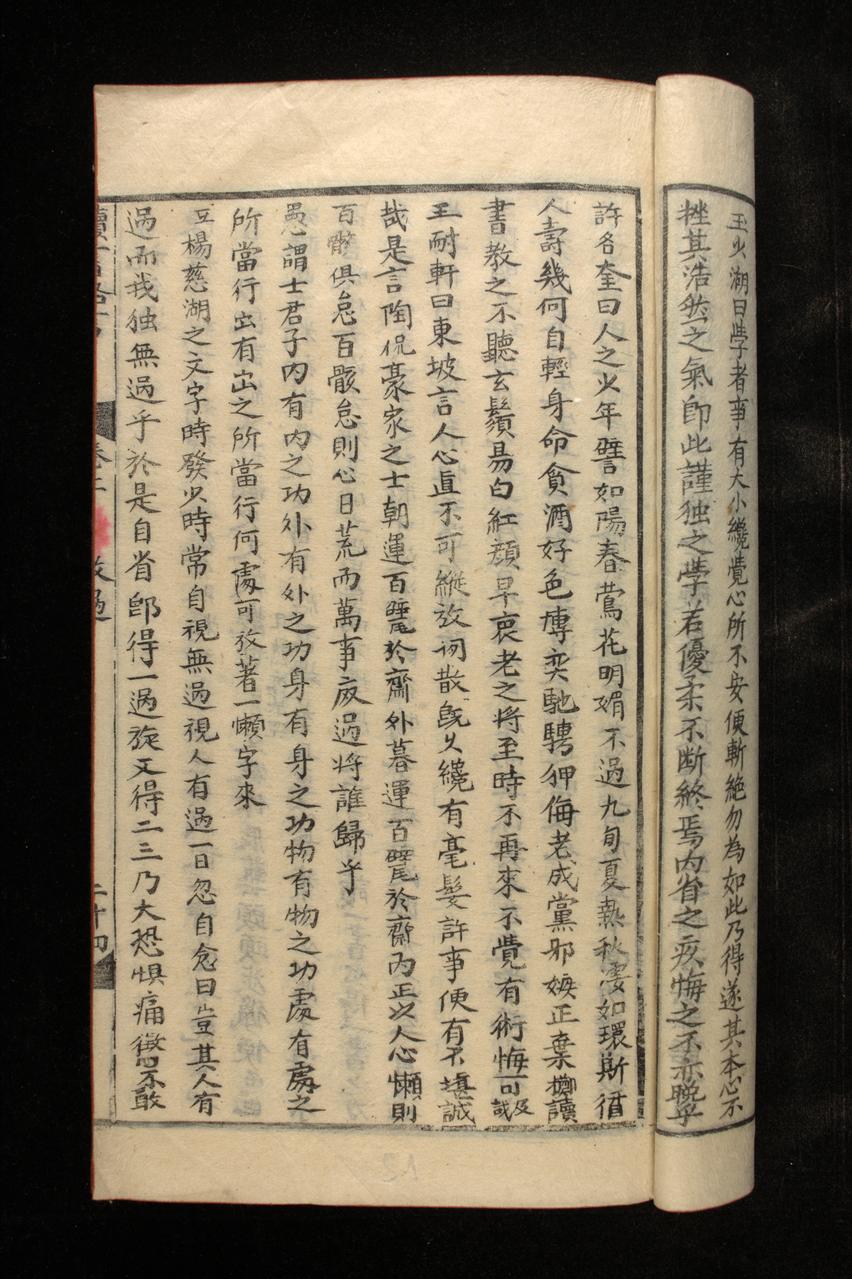 王少湖曰學者事有大小纔覺心所不安便斬絶勿為如此乃得遂其本心不
挫其浩然之氣即此謹独之學若優柔不断終焉内省之疚悔之不亦晩乎
許名奎曰人之少年譬如陽春鶯花明媚不過九旬夏熱秋凄如環斯循
人壽幾何自輕身命貪酒好色博奕馳騁狎侮老成黨邪嫉正棄擲讀
書教之不聽玄鬚易白紅顔早衰老之將至時不再來不覺有術悔可及哉
王耐軒曰東坡言人心真不可縱放閑散既久纔有毫髮許事便有不堪誠
哉是言陶侃豪家之士朝運百甓於齋外暮運百甓於齋内正以人心懶則
百骸俱怠百骸怠則心日荒而萬事廢過將誰歸乎
愚謂士君子内有内之功外有外之功身有身之功物有物之功處有處之
所當行出有出之所當行何處可放著一懶字來
楊慈湖之文字時發少時常自視無過視人有過一日忽自念曰豈其人有
過而我独無過乎於是自省即得一過旋又得二三乃大恐惧痛懲不敢
卷二 改過 二十四